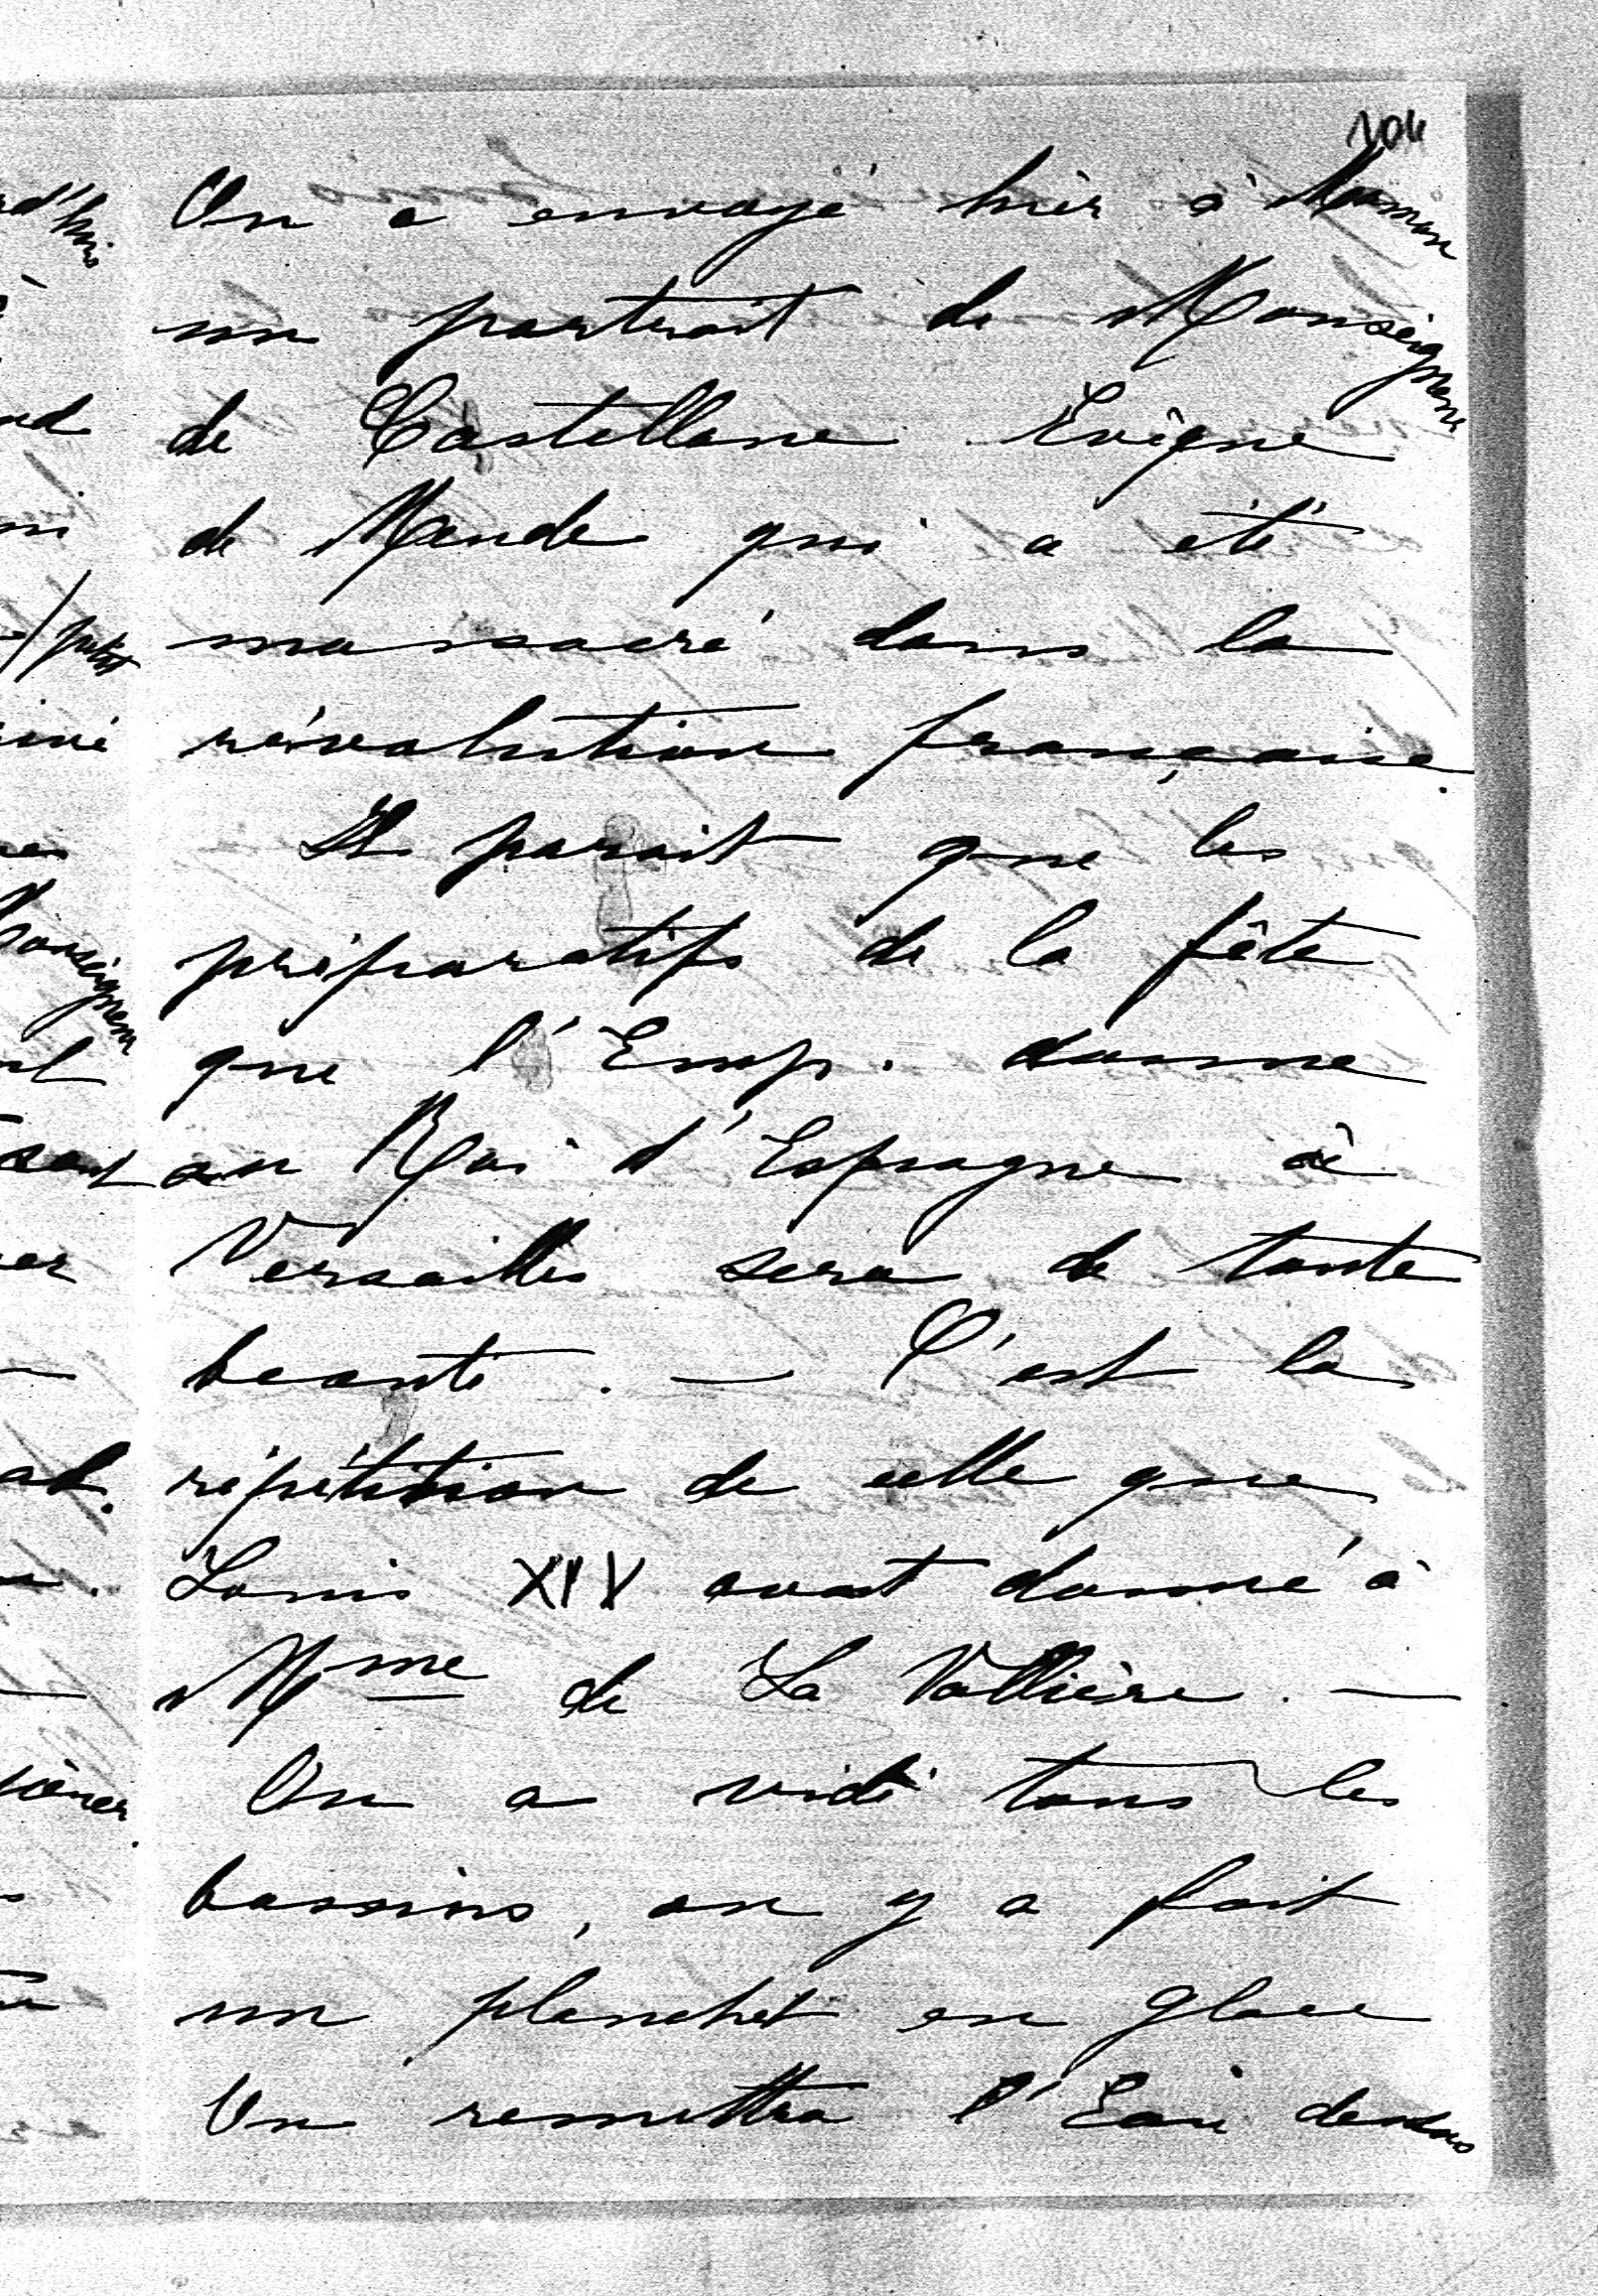 104
On a envoyé hier à Maman
un portrait de Monseigneur
de Castellane Evêque
de Mende qui a été
massacré dans la
révolution française.
Il parait que les
préparatifs de la fête
que l'Emp. donne
au Roi d'Espagne à
Versailles sera de toute
beauté. — C'est la
répétition de celle que
Louis XIV avait donné à
Mme de La Vallière. —
On a vidé tous les
bassins, on y a fait
un planchet en glace
On remettra l'Eau dessus